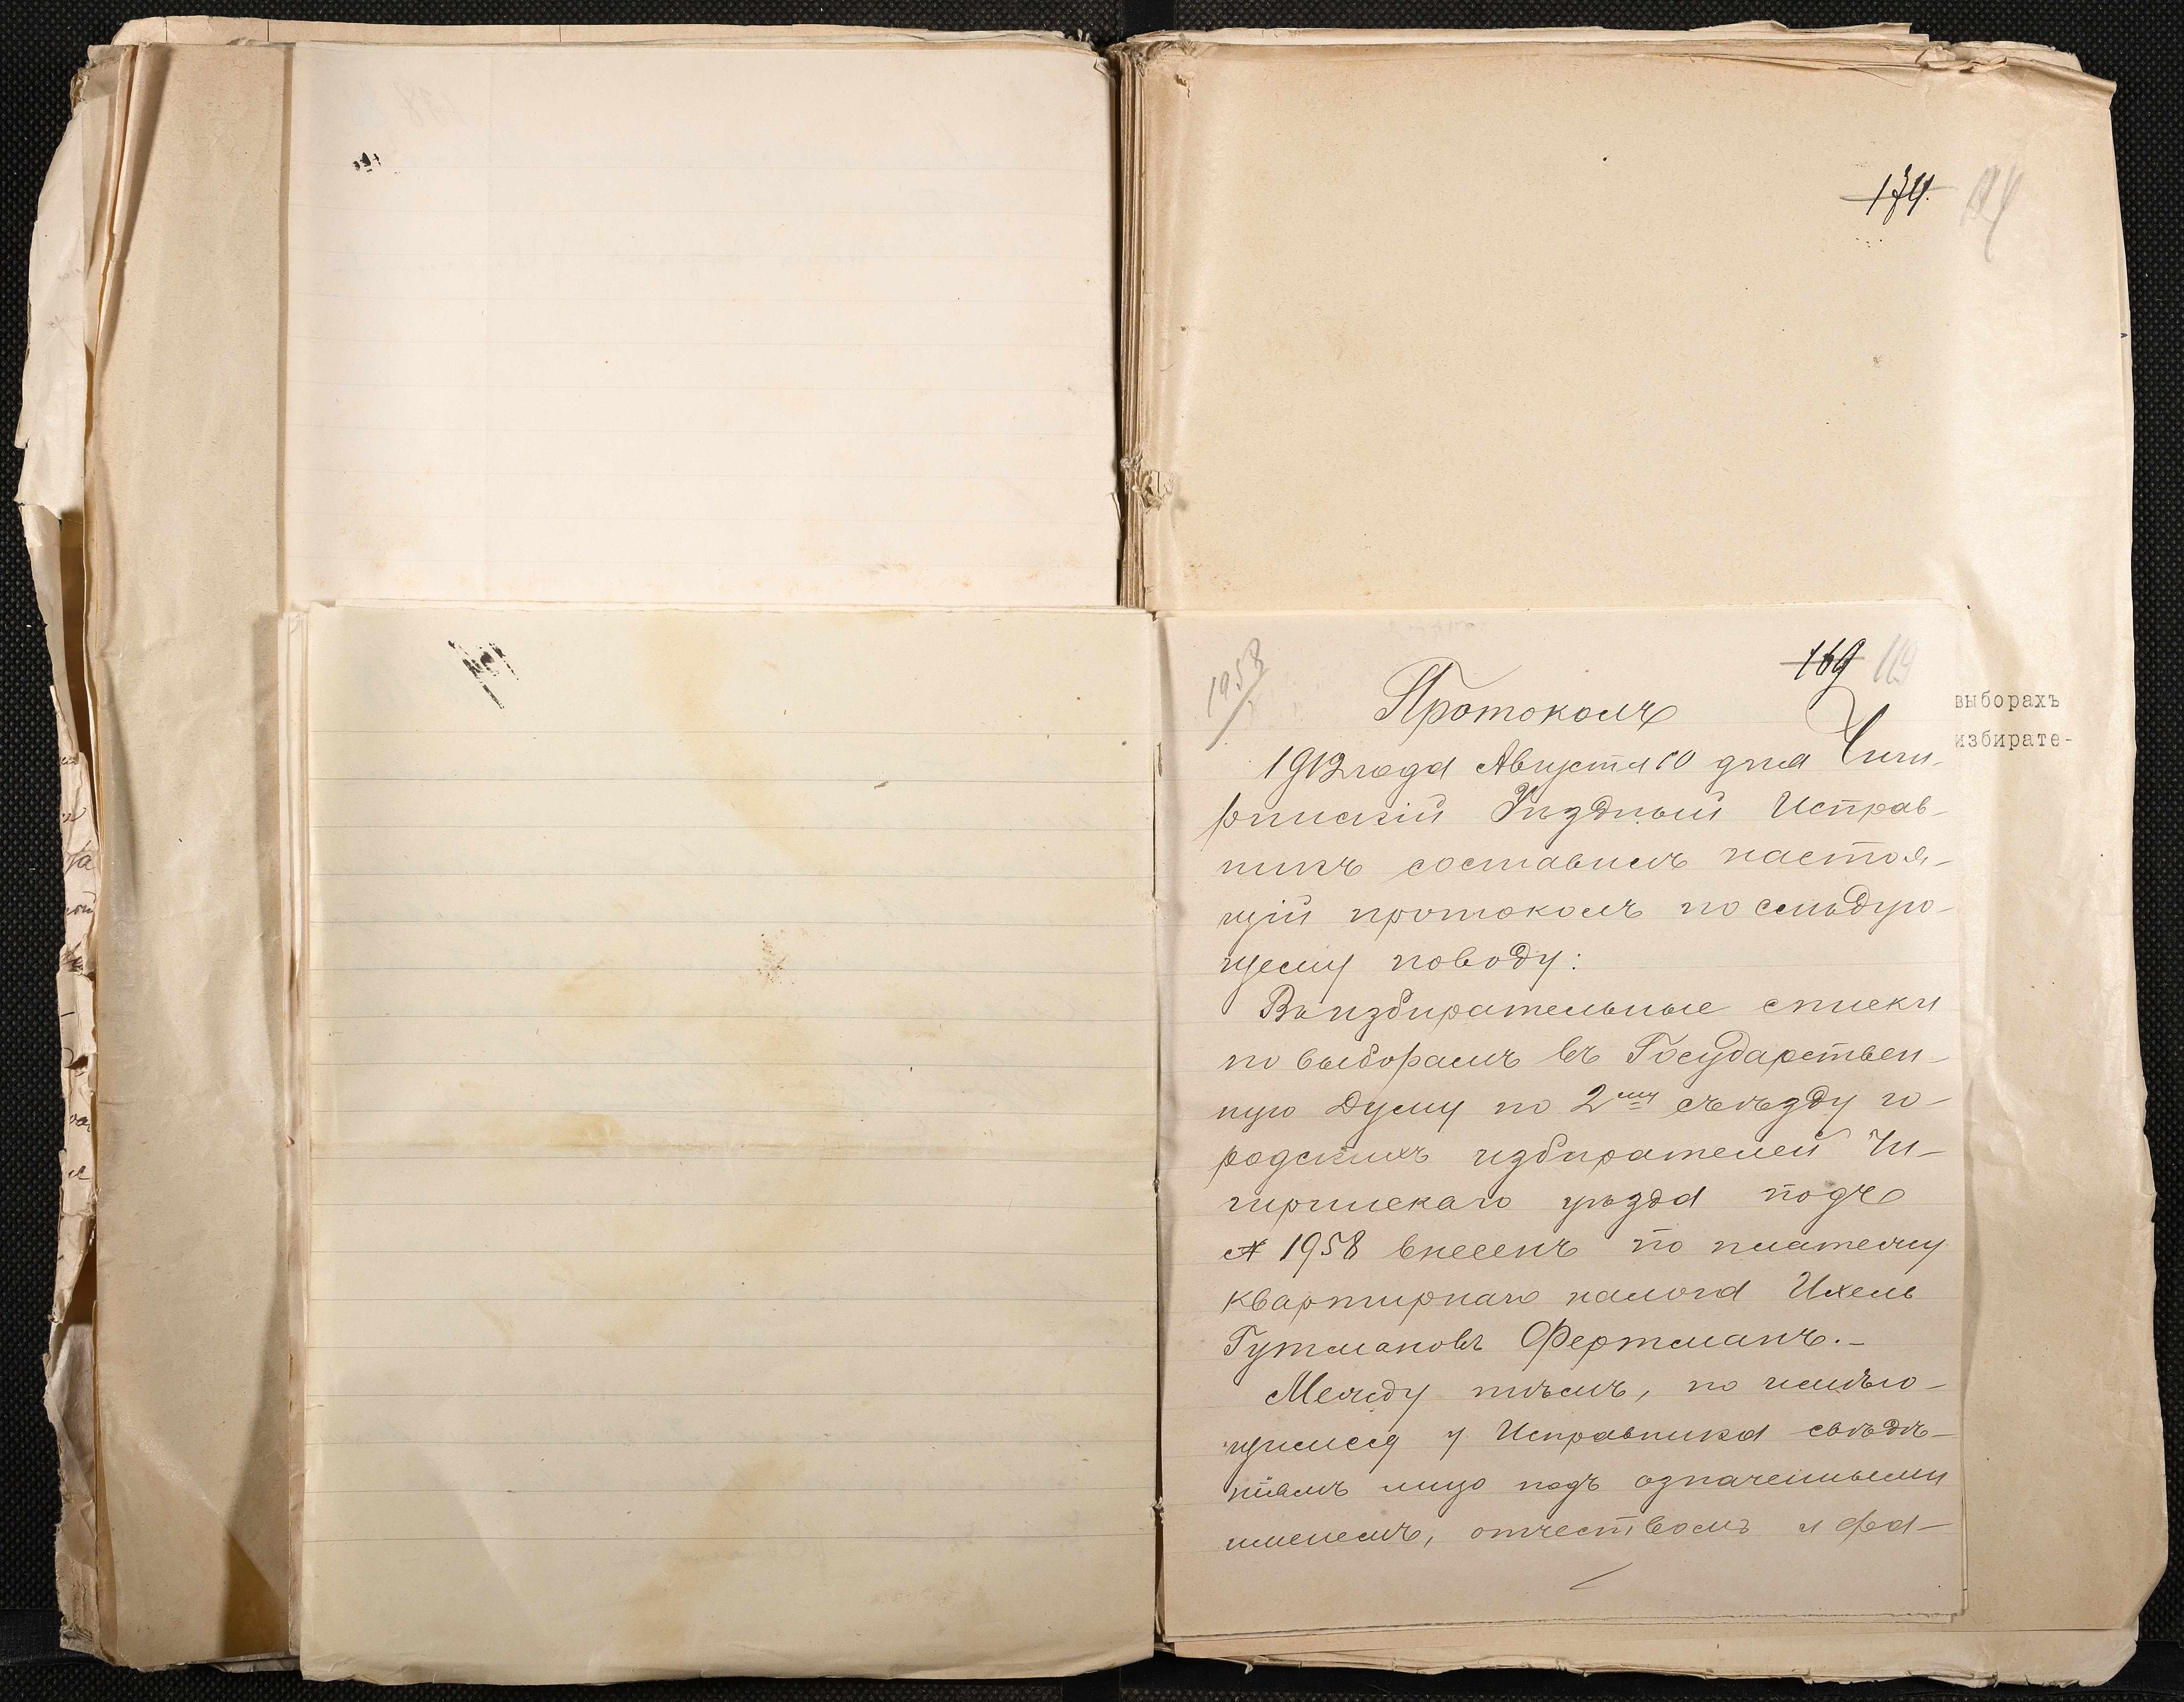 174.
1958
169 119
Протоколъ
выборахъ
избирате-
1912 года Августа 10 дня Чиги-
ринскій Уѣздный Исправ-
никъ составилъ настоя-
щій протоколъ по слѣдую-
щему поводу:
Въ избирательные списки
по выборамъ въ Государствен-
ную Думу по 2му съѣзду го-
родскихъ избирателей Чи-
гиринскаго уѣзда подъ
№ 1958 внесенъ по платежу
квартирнаго налога Ихель
Гутмановъ Фертманъ.-
Между тѣмъ, по имѣю-
щимся у Исправника свѣдѣ-
ніямъ лицо подъ означенными
именемъ, отчествомъ и фа-